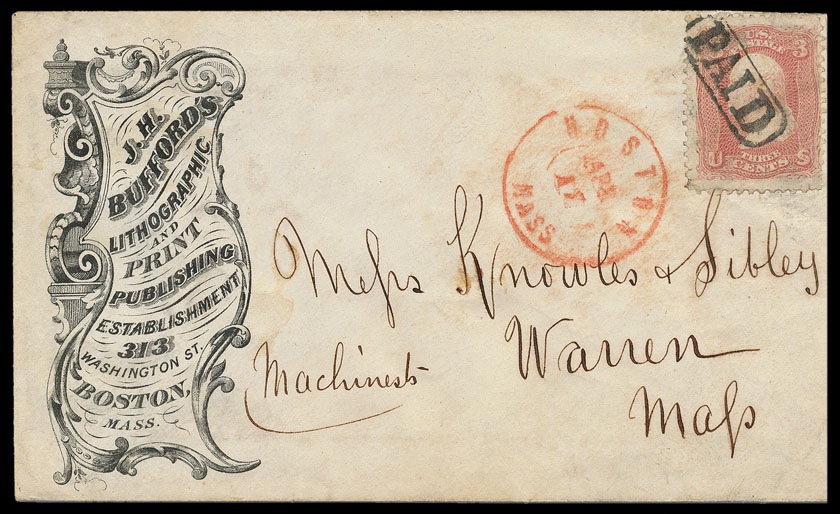 J. H.
BUFFORD'S
LITHOGRAPHIC
AND
PRINT
PUBLISHING
ESTABLISHMENT
313
WASHINGTON ST.
BOSTON,
MASS.
BOSTON
APR
17
MASS
PAID
U.S.
POSTAGE
3
U
THREE
CENTS
S
Meſsrs Knowles & Sibley
Machinests
Warren
Maſs